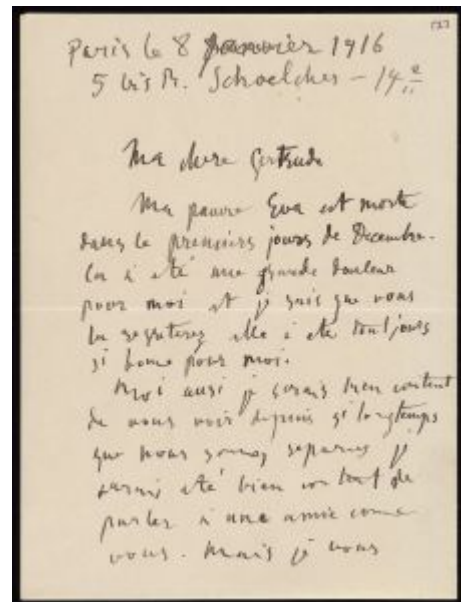 127
Paris le 8 janvier 1916
5 bis R. Schoelcher - 14e
Ma chere Gertrude
Ma pauvre Eva est morte
dans le premiers jours de Decembre.
Ca à eté une grande douleur
pour moi et je sais que vous
la regreterez elle à eté toutjours
si bonne pour moi.
Moi ausi je serais bien content
de vous voir depuis si longtemps
que nous somes separés je
serais eté bien content de
parler à une amie come
vous. Mais je vous